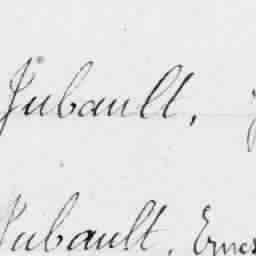 Jubault,
Jubault, Ernes